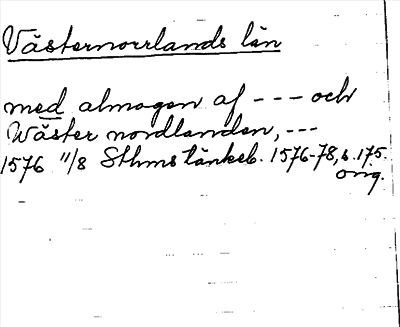 Västernorrlands län
med almogen af - - - och
Wäster nordlanden, - - -
1576 11/8 Sthms tänkeb. 1576-78, s. 175.
orig.